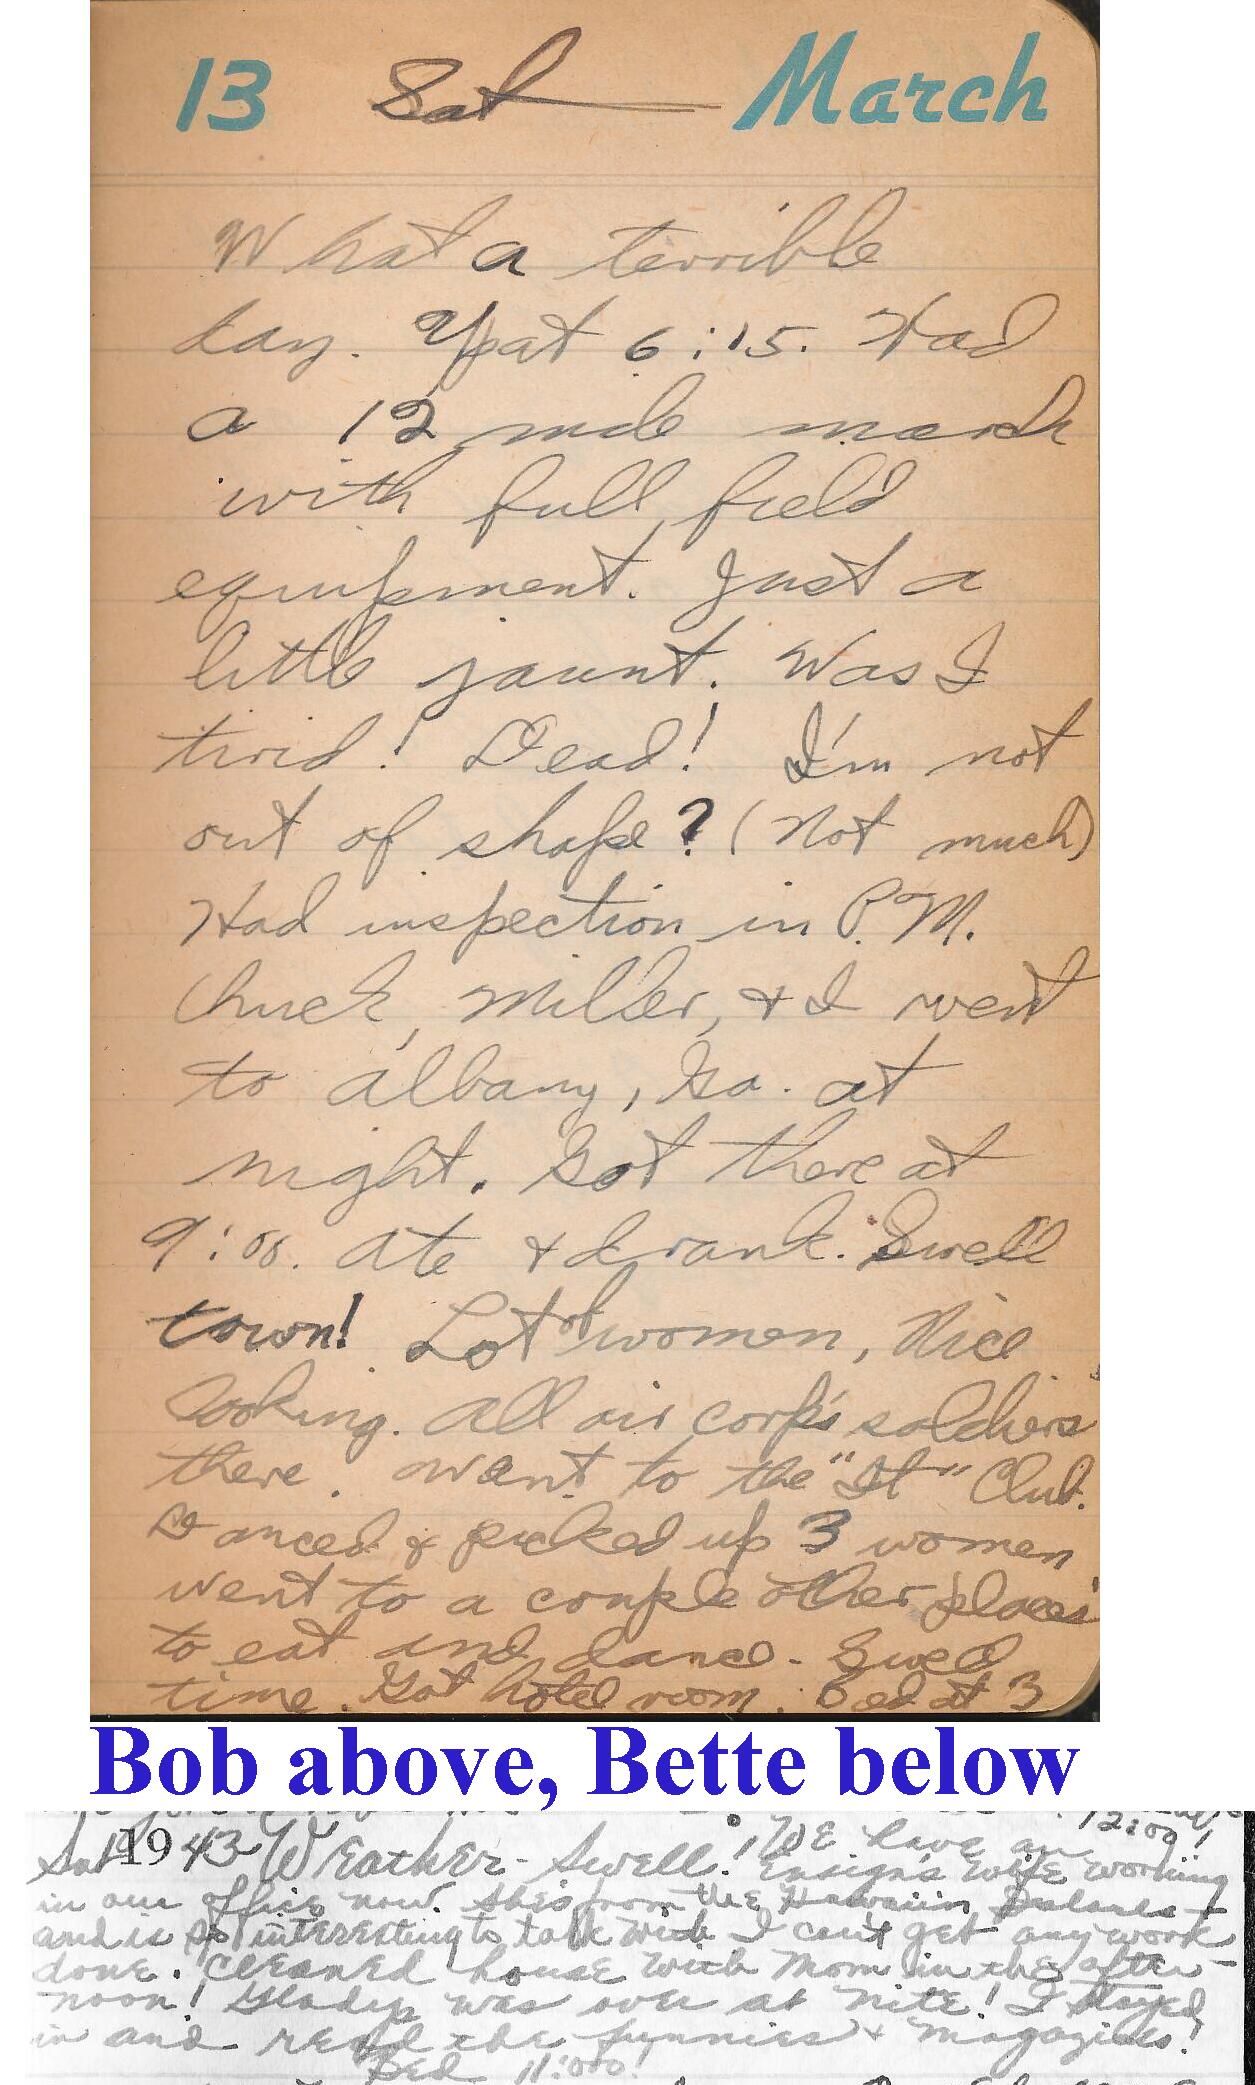 13 Sat March
What a terrible
day. Up at 6:15. Had
a 12 mile march
with full field
equipment. Just a
little jaunt. Was I
tired! Dead! I'm not
out of shape? (Not much)
Had inspection in P.M.
Chuck, Miller, & I went
to Albany, Ga. at
night. Got there at
9:00. Ate & drank. Swell
town! Lot of women, Nice
looking. All air corps soldiers
there. Went to the "It" Club.
Danced & picked up 3 women
went to a couple other places
to eat and dance. Swell
time. Got hotel room. Bed at 3
Bob above, Bette below
12:00!
Sat 1943 Weather - Swell! We have an
Ensign's wife working
in our office now. She's from the Hawaiin Islands -
and is so interesting to talk with I can't get any work
done. Cleaned house with Mom in the after-
noon! Gladys was over at nite! I stayed
in and read the funnies & magazines!
Bed 11:00!